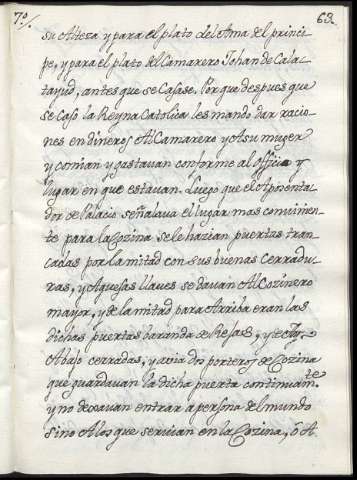 70/. 69.
su Alteza y para el plato del Ama del princi-
pe, y para el plato del Camarero Johan de Cala-
tayud, antes que se Casase, Porque despues que
se Casó la Reyna Catolica les mando dar racio-
nes en dineros Al Camarero y A su muger
y comian y gastavan conforme al officio y
lugar en que estavan. Luego que el Aposenta-
dor de Palacio señalava el lugar mas convinien-
te para la Cozina se le hazian puertas tran-
cadas por la mitad con sus buenas cerradu-
ras, y Aquellas llaves se davan Al Cozinero
mayor, y de la mitad para Arriba eran las
dichas puertas baranda de Rejas, y
Abajo cerradas, y avia dos porteros de Cozina
que guardavan la dicha puerta continuamte.
y no dexavan entrar a persona del mundo
sino A los que servian en la Cozina, ó A